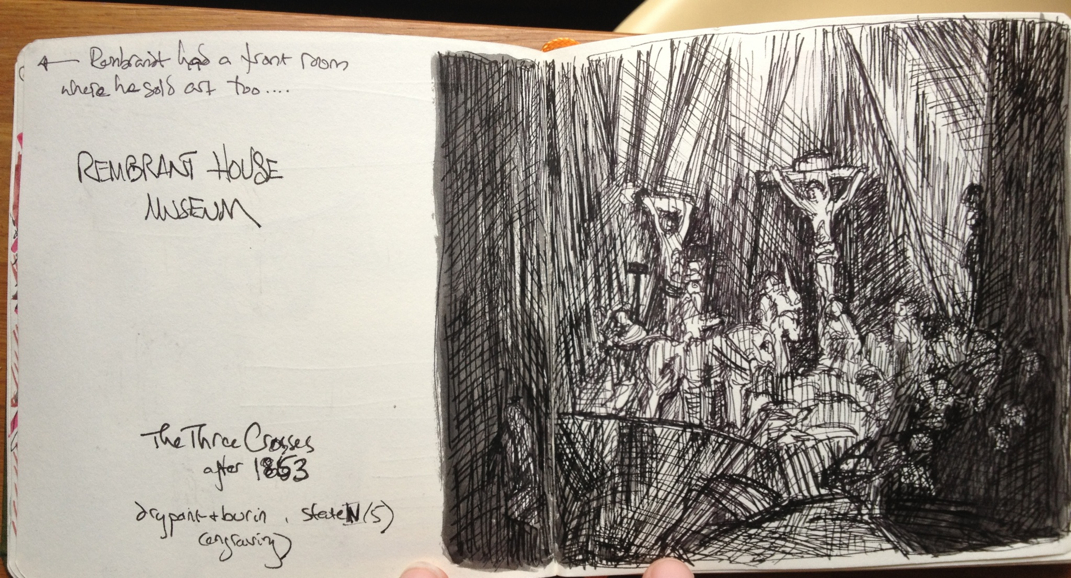 ← Rembrandt had a front room
where he sold art too....
REMBRANT HOUSE
MUSEUM
The Three Crosses
after 1653
drypoint + burin, state N (5)
(engraving)